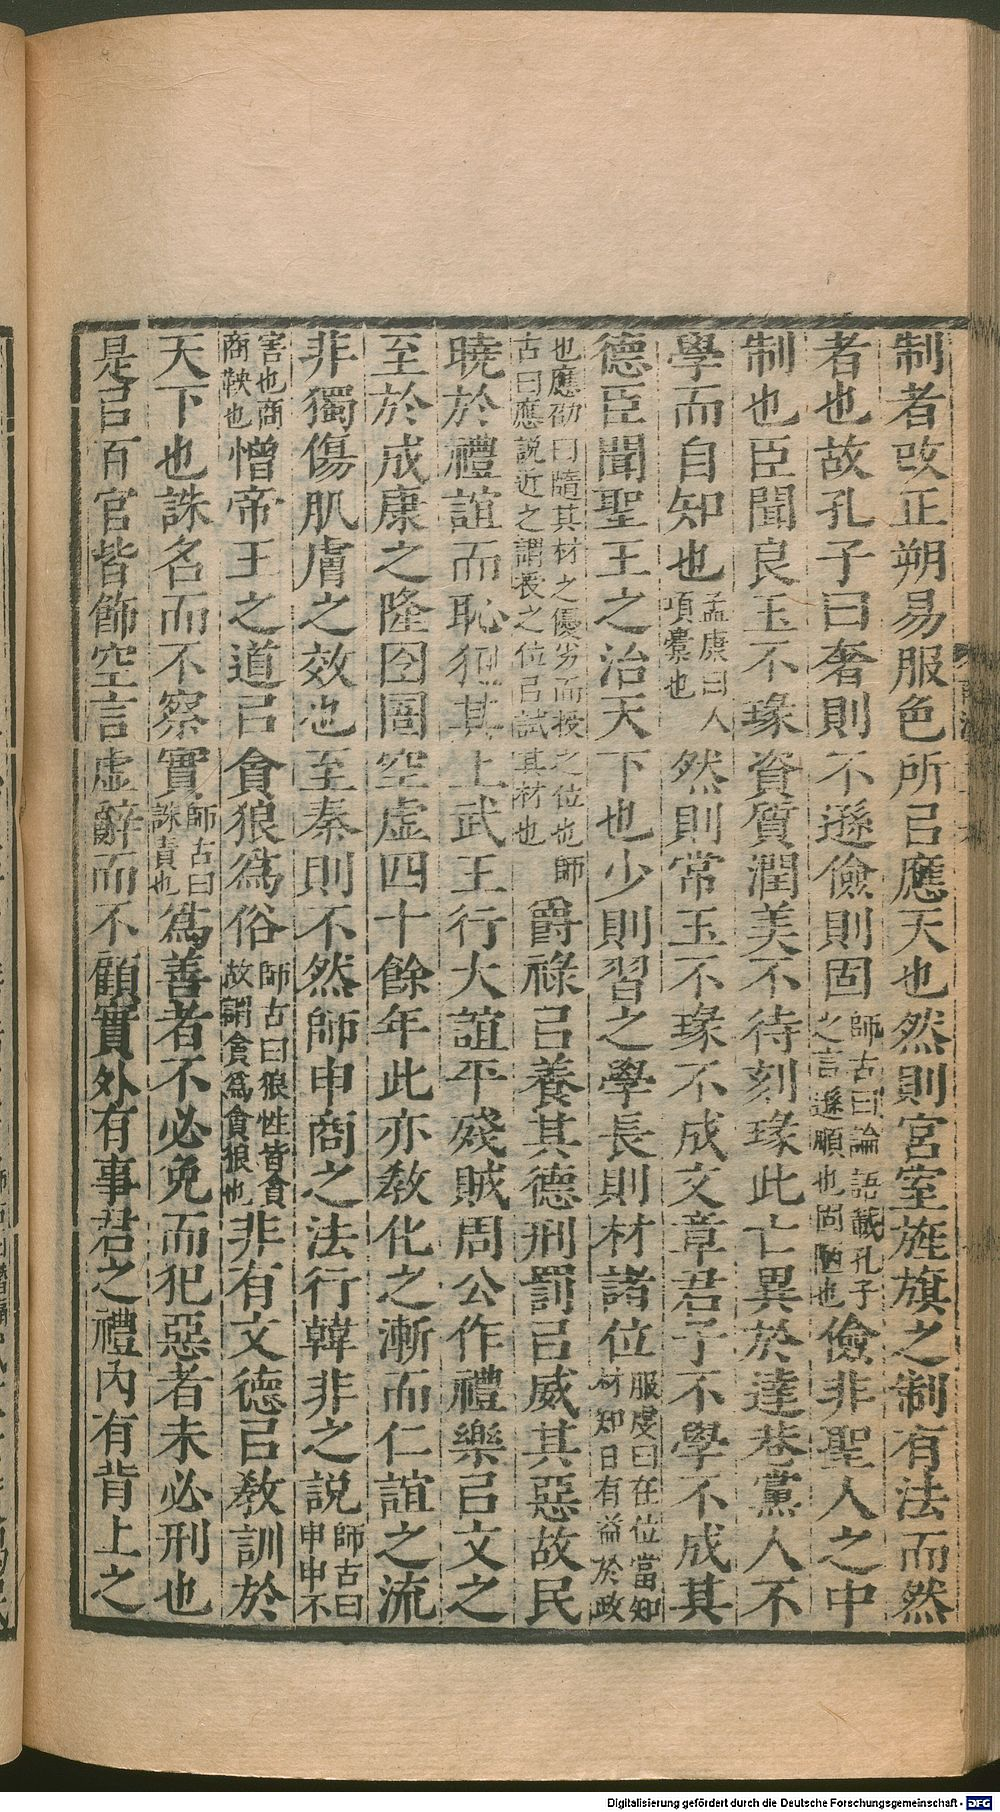 制者改正朔易服色所㠯應天也然則宮室旌旗之制有法而然
者也故孔子曰奢則不遜儉則固師古曰論語載孔子之言遜順也固陋也儉非聖人之中
制也臣聞良玉不瑑資質潤美不待刻瑑此亡異於達巷黨人不
學而自知也孟康曰人項橐也然則常玉不瑑不成文章君子不學不成其
德臣聞聖王之治天下也少則習之學長則材諸位服虔曰在位當知材知日有益於政
也應劭曰隨其材之優劣而授之位也師古曰應説近之謂授之位㠯試其材也爵祿㠯養其德刑罰㠯威其惡故民
曉於禮誼而恥犯其上武王行大誼平殘賊周公作禮樂㠯文之
至於成康之隆囹圄空虛四十餘年此亦教化之漸而仁誼之流
非獨傷肌膚之效也至秦則不然師申商之法行韓非之説師古曰申申不
害也商商鞅也憎帝王之道㠯貪狼爲俗師古曰狼性皆貪故謂貪爲貪狼也非有文德㠯教訓於
天下也誅名而不察實師古曰誅責也爲善者不必免而犯惡者未必刑也
是㠯百官皆飾空言虛辭而不顧實外有事君之禮內有背上之
Digitalisierung gefördert durch die Deutsche Forschungsgemeinschaft - DFG